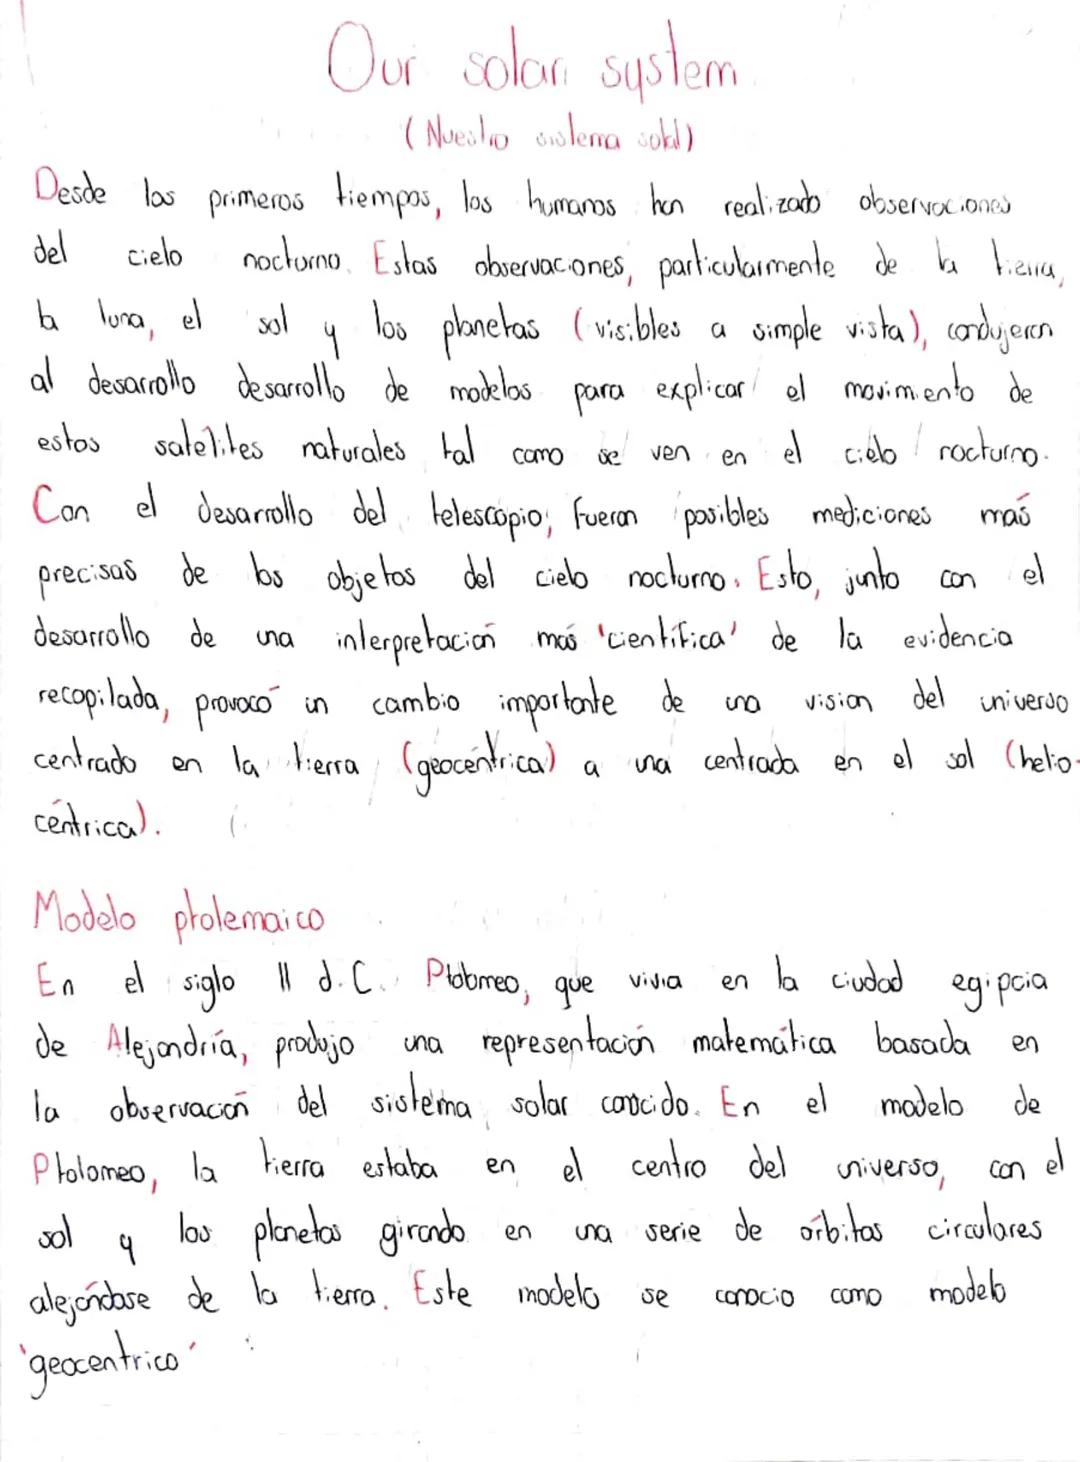 Our solar system
(Nuestro sistema solal)
Desde los primeros tiempos, los humanos han realizado observaciones
del cielo nocturno. Estas observaciones, particularmente de la tierra,
la luna, el sol y los planetas (visibles a simple vista), condujeron
al desarrollo desarrollo de modelos para explicar el movimiento de
estos satélites naturales tal como se ven en el cielo nocturno.
Con el desarrollo del telescópio, fueron posibles mediciones más
precisas de los objetos del cielo nocturno. Esto, junto con el
desarrollo de una interpretación más 'científica' de la evidencia
recopilada, provocó un cambio importante de una vision del universo
centrado en la tierra (geocéntrica) a una centrada en el sol (helio-
céntrica).
Modelo ptolemaico
En el siglo II d.C. Ptolomeo, que vivia en la ciudad egipcia
de Alejandría, produjo una representación matemática basada en
la observación del sistema solar conocido. En el modelo de
Ptolomeo, la tierra estaba en el centro del universo, con el
sol y los planetas girando en una serie de órbitas circulares
alejándose de la tierra. Este modelo se conocio como modelo
'geocentrico'